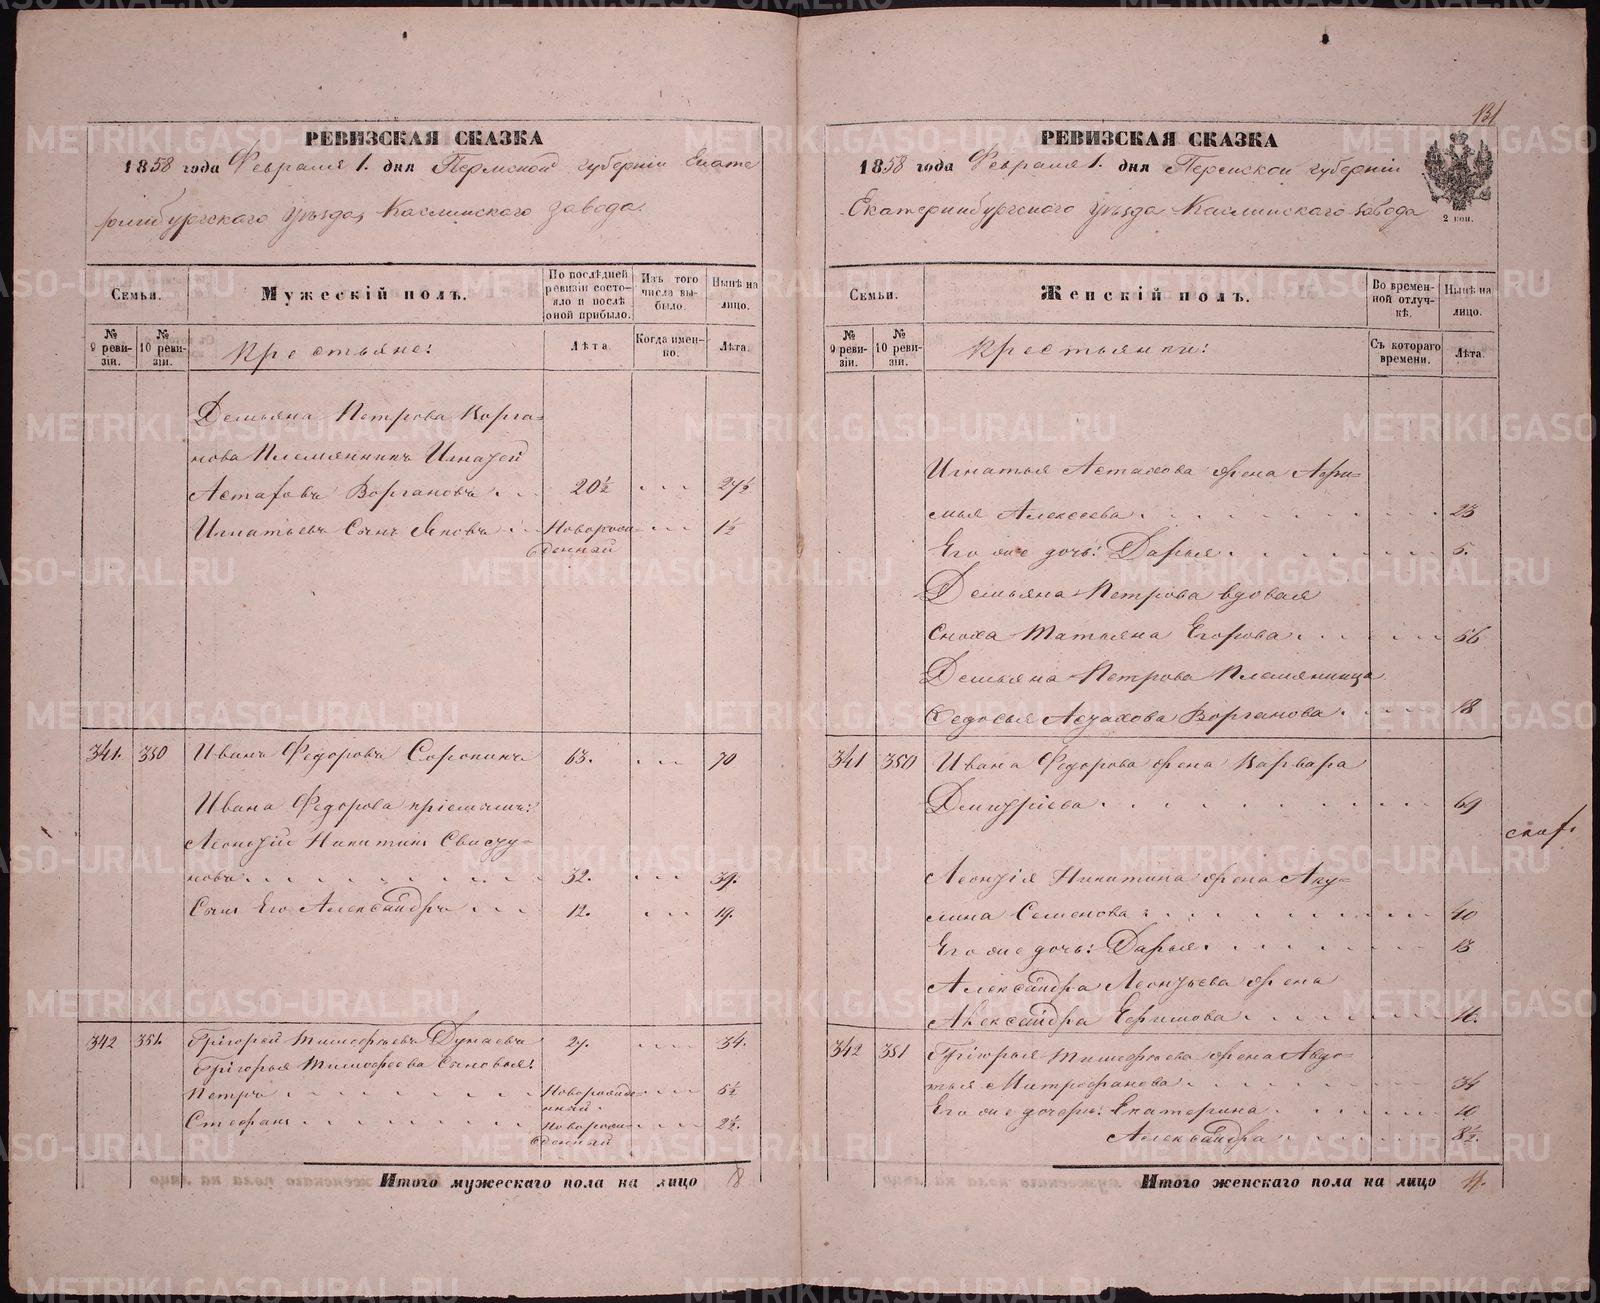 131
РЕВИЗСКАЯ СКАЗКА
1858 года Февраля 1. дня Пермской губерніи Екате
ринбургскаго Уѣзда, Каслинскаго завода.
Семьи.
Мужескій полъ.
По послѣдней ревизіи состояло и послѣ оной прибыло.
Изъ того числа выбыло.
Нынѣ на лицо.
№ 9 ревизіи.
№ 10 ревизіи.
Крестьяне:
Лѣта.
Когда именно.
Лѣта.
Демьяна Петрова Ворга=
нова Племянникъ Игнатей
Астафовъ Воргановъ . . 20½ . . . 27½
Игнатьевъ Сынъ Яковъ . . Новорож= . . . 1½
денный
341. 350 Иванъ Федоровъ Сорокинъ 63. . . . 70
Ивана Федорова пріемышъ:
Леонтій Никитинъ Свисту=
новъ . . . . . . . . 32. . . . 39.
Сынъ Его Александръ . . . 12. . . . 19.
342 351. Григорей Тимофеевъ Дунаевъ 27. . . . 34.
Григорья Тимофеева Сыновья:
Петръ . . . . . . . . Новорожде= . . . 5½
нный.
Стефанъ . . . . . . . . Новорож= . . . 2½.
денный
Итого мужескаго пола на лицо 8
РЕВИЗСКАЯ СКАЗКА
1858 года Февраля 1. дня Пермской губерніи
Екатеринбургскаго Уѣзда Каслинскаго завода
2 коп.
Семьи.
Женскій полъ.
Во временной отлучкѣ.
Нынѣ на лицо.
№ 9 ревизіи.
№ 10 ревизіи.
Крестьянки:
Съ котораго времени.
Лѣта.
Игнатья Астахова жена Афи=
мья Алексеева . . . . . . . . 23
Его же дочь: Дарья . . . . . . . . 5.
Демьяна Петрова вдовая
Сноха Татьяна Егорова . . . . . . 56
Демьяна Петрова Племянница
Федосья Астахова Ворганова . . . . 18
341 350 Ивана Федорова жена Варвара
Дмитріева . . . . . . . . 69
Леонтія Никитина жена Аку=
лина Семенова . . . . . . . . 40
Его же дочь: Дарья . . . . . . . . 13
Александра Леонтьева жена
Александра Ефимова . . . . . . 16.
342 351 Григорья Тимофеева жена Авдо=
тья Митрофанова . . . . . . . . 34
Его же дочери: Екатерина . . . . . . 10
Александра . . . . . . 8½.
Итого женскаго пола на лицо 11.
METRIKI.GASO-URAL.RU